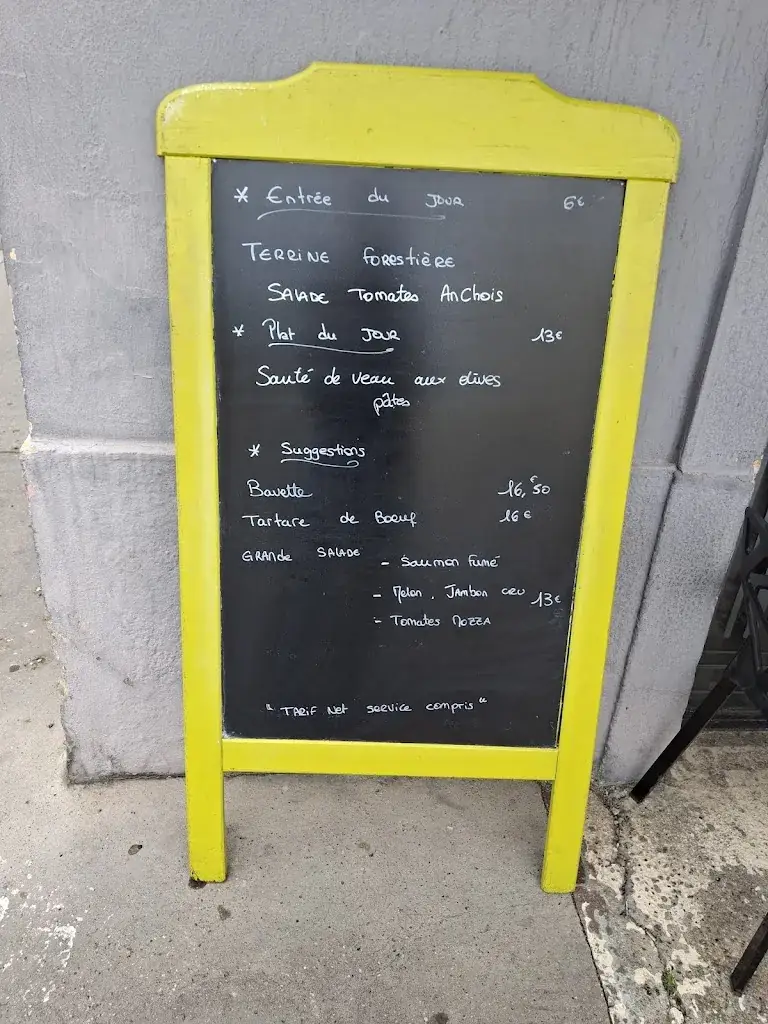 * Entrée du JOUR 6€
TERRINE FORESTIÈRE
SALADE Tomates AnChois
* Plat du JOUR 13€
Sauté de veau aux olives
pâtes
* Suggestions
Bavette 16,€50
Tartare de Boeuf 16€
GRANDE SALADE - Saumon Fumé
- Melon, Jambon CRU 13€
- Tomates MOZZA
"TARiF Net service compris"